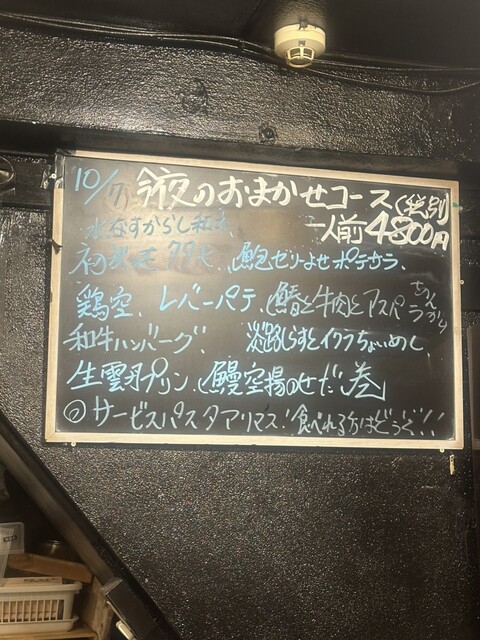 10/7 今夜のおまかせコース(税別)
一人前4800円
水なすからし和え
ゼリーよせポテサラ、
鶏空、レバーパテ、と牛肉とアスパラ
和牛ハンバーグ、淡路しらすとイクラちょいめし、
生雲丹プリン、鰻空揚のせだし巻
◎サービスパスタアリマス!食べれる方はどうぞ!!